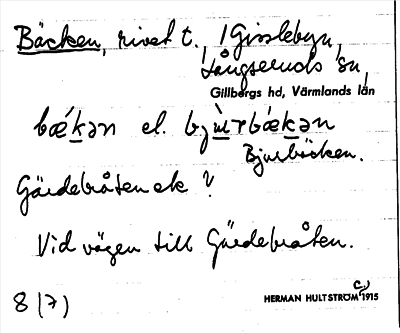 Bäcken, rivet t., i Gisslebyn,
Långseruds sn,
Gillbergs hd, Värmlands län
bǽkən el. bju̇rbǽkən
Bjurbäcken.
Gärdebråten ek ?
Vid vägen till Gärdebråten.
8 (7)
HERMAN HULTSTRÖM 1915